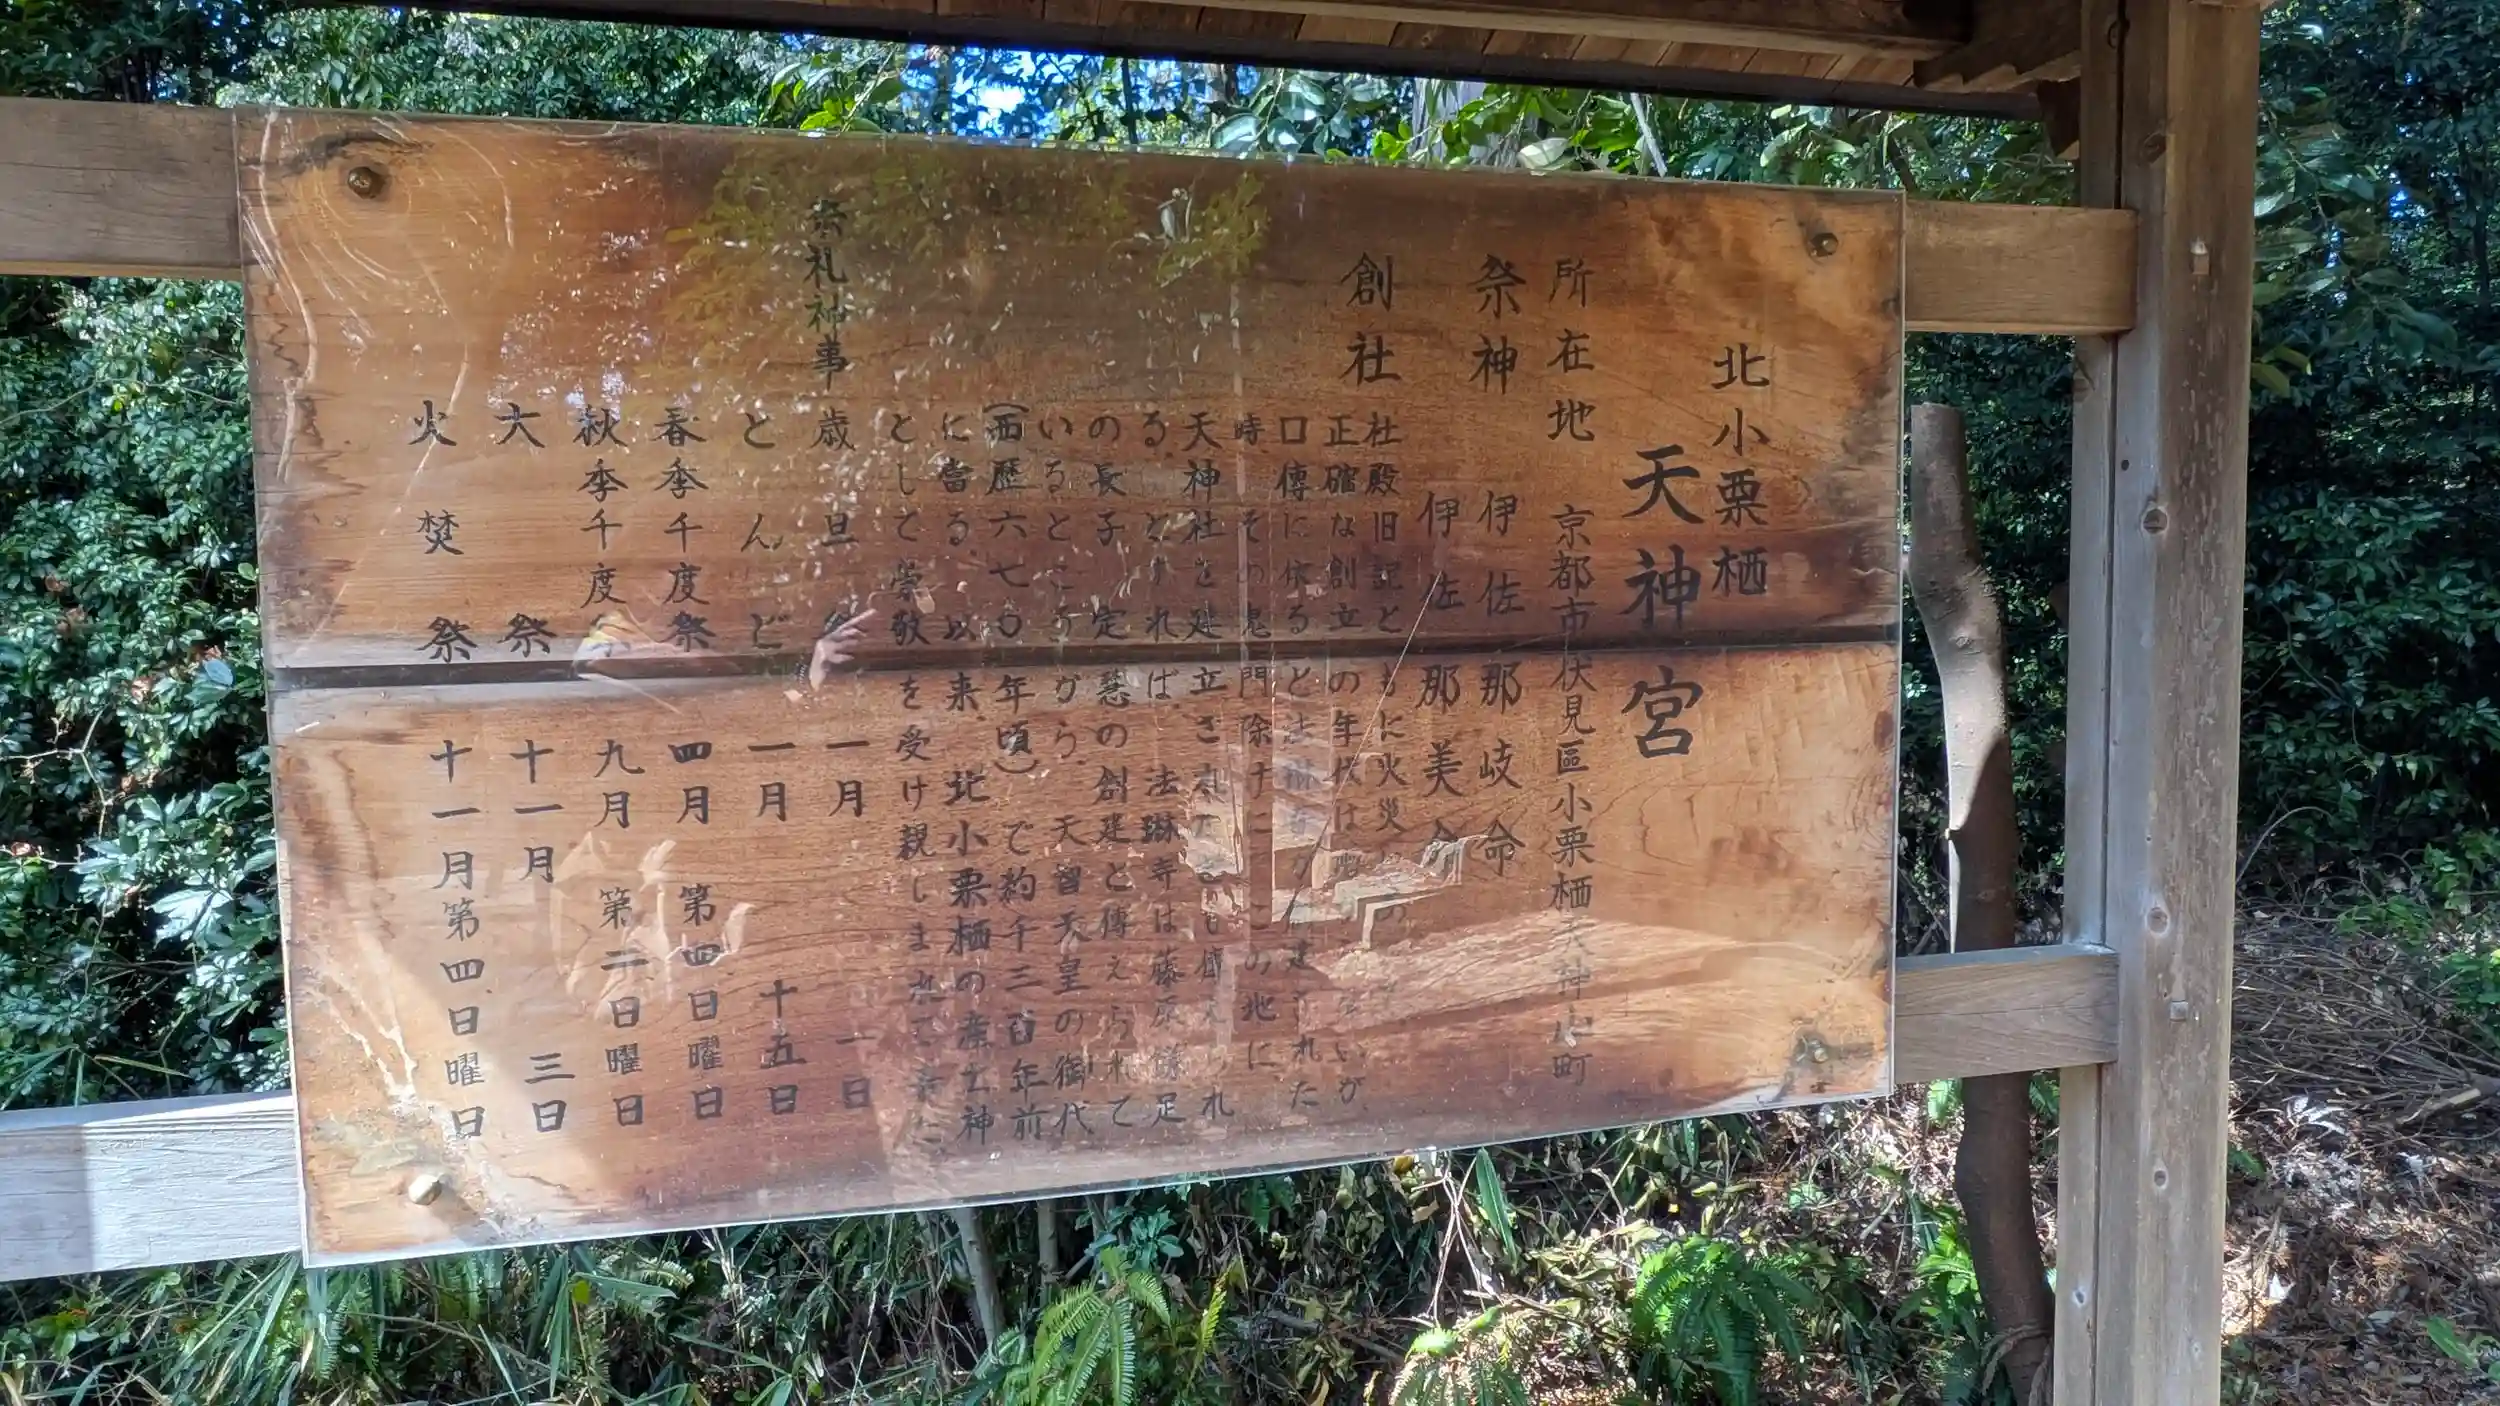 北小栗栖
天神宮
所在地 京都市伏見區小栗栖天神山町
祭神 伊佐那岐命
伊佐那美命
創社 社殿旧記ともに火災
正確な創立の年代は いが、
口傳に依ると法琳寺が創建された
時、その鬼門除けにこの地に
天神社を建立されたとも傳えられ
る。とすれば、法琳寺は藤原鎌足
の長子 定慧の創建と傳えられて
いるところから、天智天皇の御代
(西歴六七〇年頃)で約千三百年前
に當る。以来、北小栗栖の産土神
として崇敬を受け親しまれて来た
祭礼神事 歳旦祭 一月 一日
とんど 一月 十五日
春季千度祭 四月 第四日曜日
秋季千度 九月 第二日曜日
大祭 十一月 三日
火焚祭 十一月第四日曜日